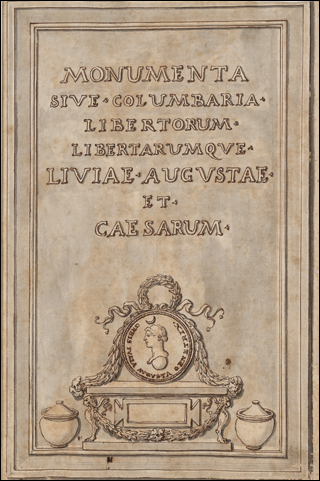 MONUMENTA
SIVE · COLUMBARIA ·
LIBERTORUM ·
LIBERTARUMQVE ·
LIVIAE · AUGVSTAE ·
ET ·
CAESARUM ·